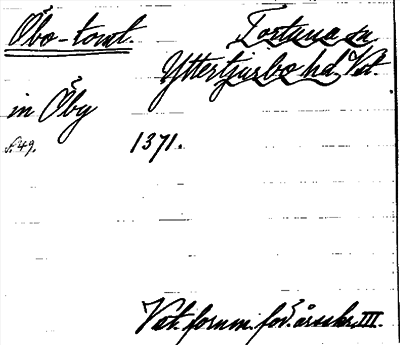 Öbo-tomt. Tortuna sn
Yttertjurbo hd. Vst.
in Öby
s. 49. 1371.
Vst. fornm. för. årsskr. III.